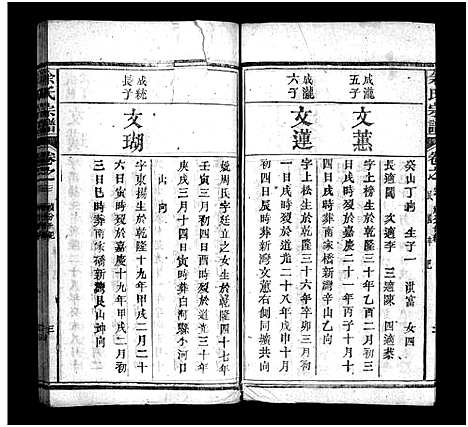 余氏宗譜
卷之
癸山丁向 生子一 洪富 女四
長適閻 文適李 三適陳 四適蔡
成瀧五子
文蕙
字上松生於乾隆三十年乙酉二月初三
日戌時歿於嘉慶二十一年丙子十二月
四日戌時葬南家橋新灣辛山乙向
成瀧六子
文蓮
字上榜生於乾隆三十六年辛卯三月初
九日寅時歿於道光二十八年戊申十月
初四日辰時葬新灣文蕙右側同壙共向
娶周氏字廷立之女生於乾隆四十七年
壬寅三月初八日寅時歿於道光三十年
庚戌三月十四日寅時葬白河縣小河口
山向
成統長子
文瑚
字東揚生於乾隆十九年甲戌二月二十
六日寅時歿於嘉慶十九年甲戌二月初
三日巳時葬南家橋新灣艮山坤向
余氏宗譜
卷之三